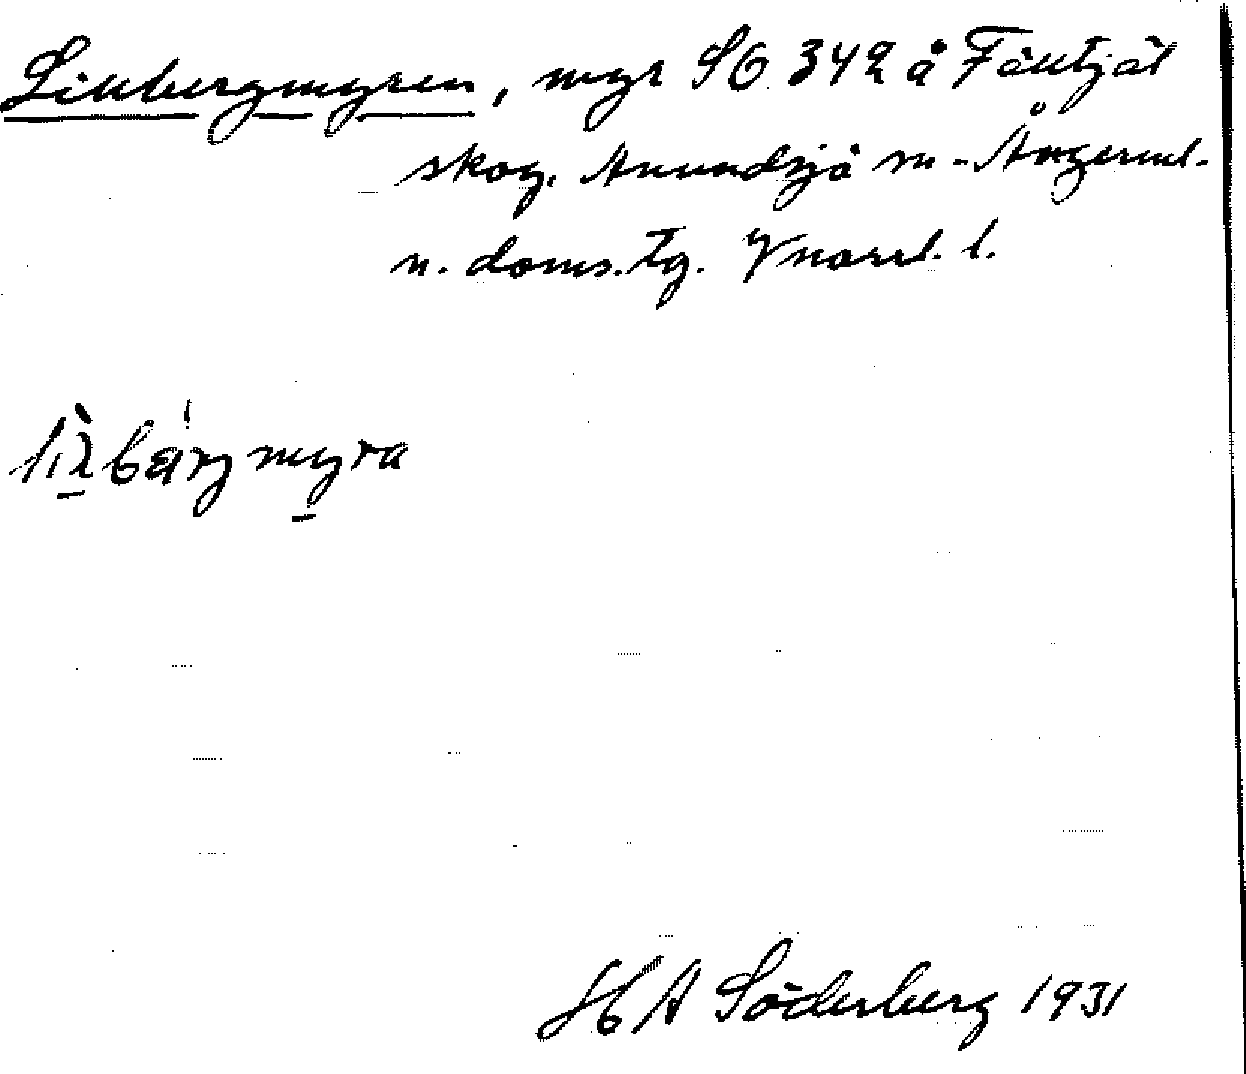 Linbergmyren, myr SO 342 å Fäktjäl
skog. Anundsjö sn - Ångerml.
n. doms. tg. Vnorrl. l.
bärgmyra
H A Söderberg 1931